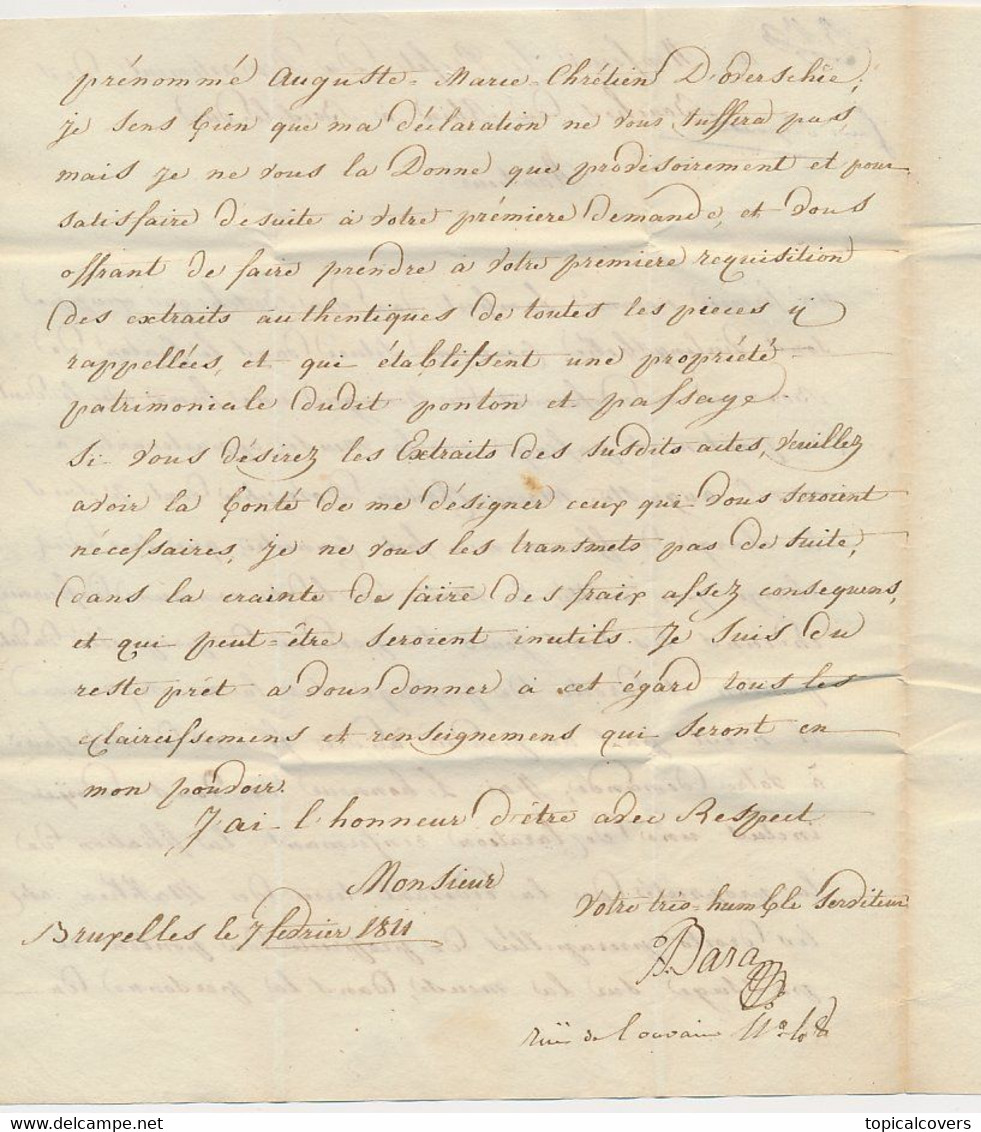 prénommé Auguste-Marie-Chrétien D'overschie;
je sens bien que ma déclaration ne vous suffira pas,
mais je ne vous la Donne que provisoirement et pour
satisfaire desuite à votre prémiere demande, et vous
offrant de faire prendre à votre premiere requisition
des extraits authentiques de toutes les pieces y
rappellées, et qui établissent une propriété
patrimoniale dudit ponton et passage.
si vous désirez les Extraits des susdits actes, veuillez
avoir la bonté de me désigner ceux qui vous seroient
nécessaires, je ne vous les transmets pas de suite,
dans la crainte de faire des fraix assez consequens,
et qui peut-être seroient inutils. Je suis du
reste prét a vous donner à cet égard tous les
eclaircissemens et renseignemens qui seront en
mon pouvoir.
J'ai l'honneur d'étre avec Respect
Monsieur
Votre très-humble serviteur
Bruxelles le 7 fevrier 1811
Bara
rüe de Louvain N.º
topicalcovers